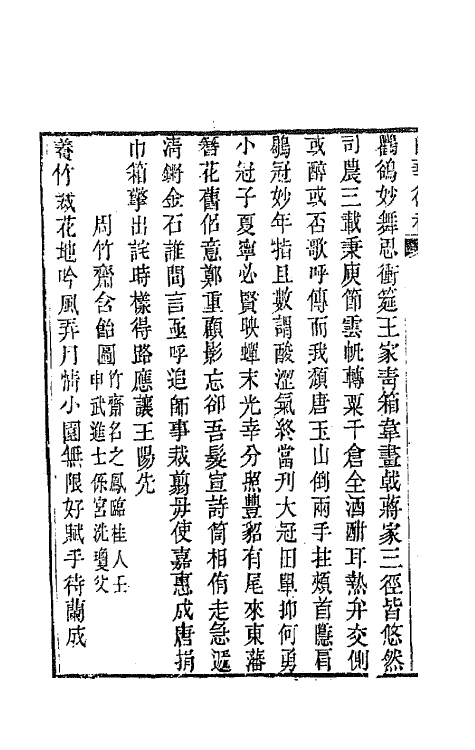 鸜鵒妙舞忍衝筵王家靑箱韋畫戟蔣家三徑皆悠然
司農三載秉庾節雲帆轉粟千倉全酒酣耳熱弁交側
或醉或否歌呼傳而我頹唐玉山倒兩手拄頰首隱肩
鶡冠妙年指且數謂酸澀氣終當刋大冠田單抑何勇
小冠子夏寧必賢映蟬末光幸分照豐貂有尾來東藩
簪花舊侶意鄭重顧影忘卻吾髮宣詩筒相侑走急遞
淸鏘金石誰間言亟呼追師事裁翦毋使嘉惠成唐捐
巾箱擎出詫時樣得路應讓王陽先
周竹齋含飴圖竹齋名之鳳臨桂人壬
申武進士係宮洗瓊父
養竹栽花地吟風弄月情小園無限好賦手待蘭成